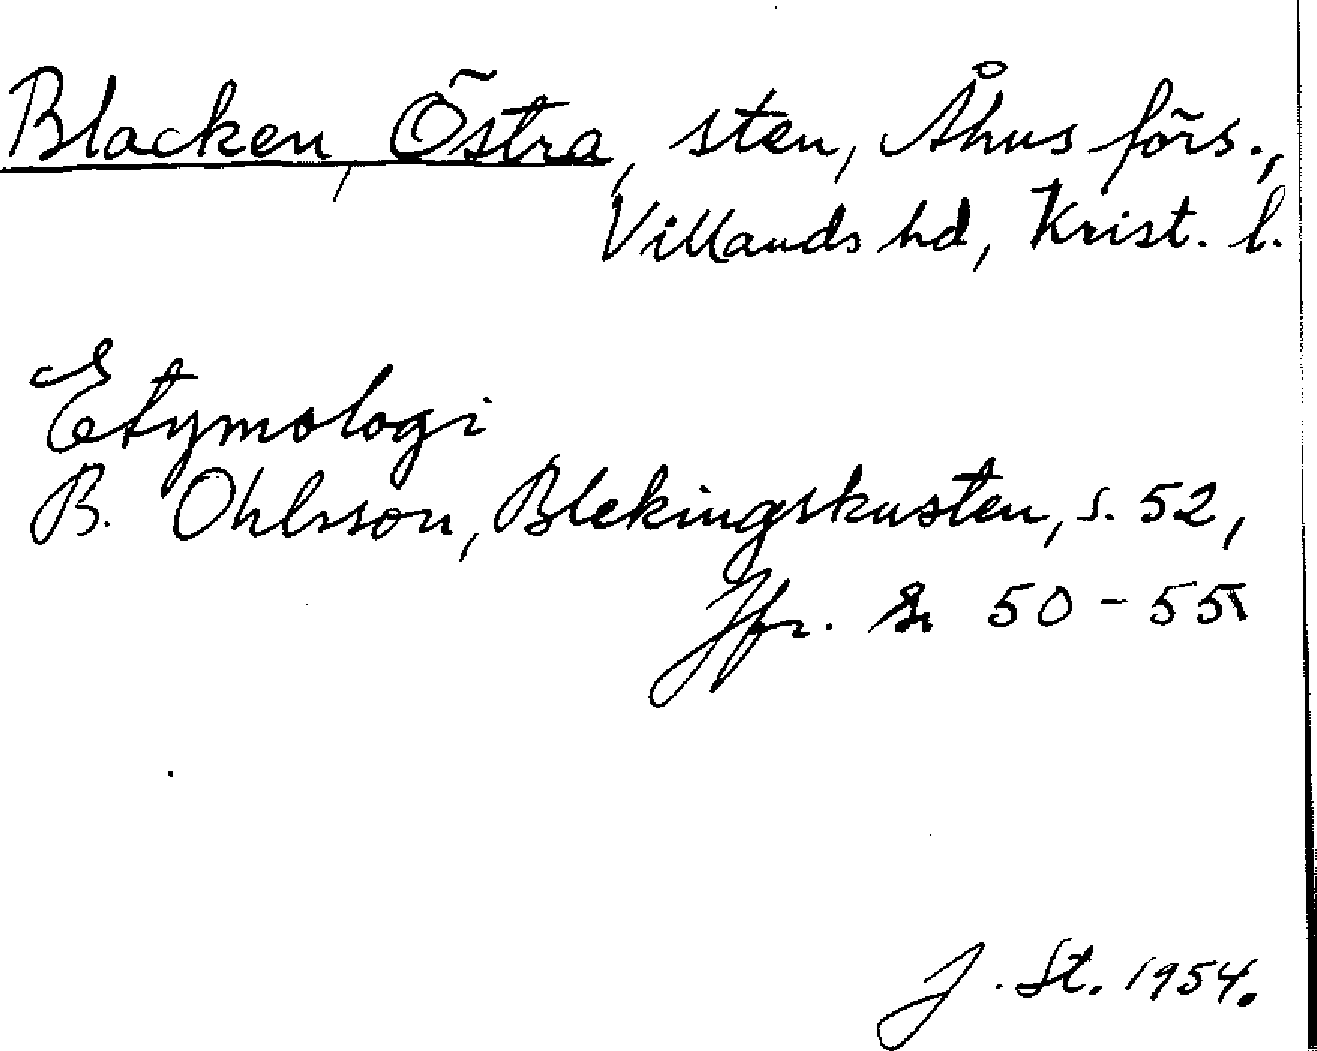 Blacken, Östra, sten, Åhus förs.,
Villands hd, Krist. l.
Etymologi
B. Ohlsson, Blekingskusten, s. 52,
Jfr. s. 50-55
J. St. 1954.